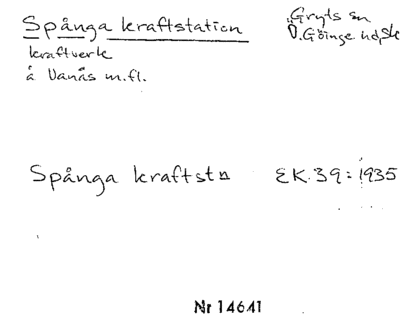 Spånga kraftstation
Gryts sn
V. Göinge hd, Sk
kraftverk
å Vanås m.fl.
Spånga kraftstn EK. 39: 1935
Nr 14641